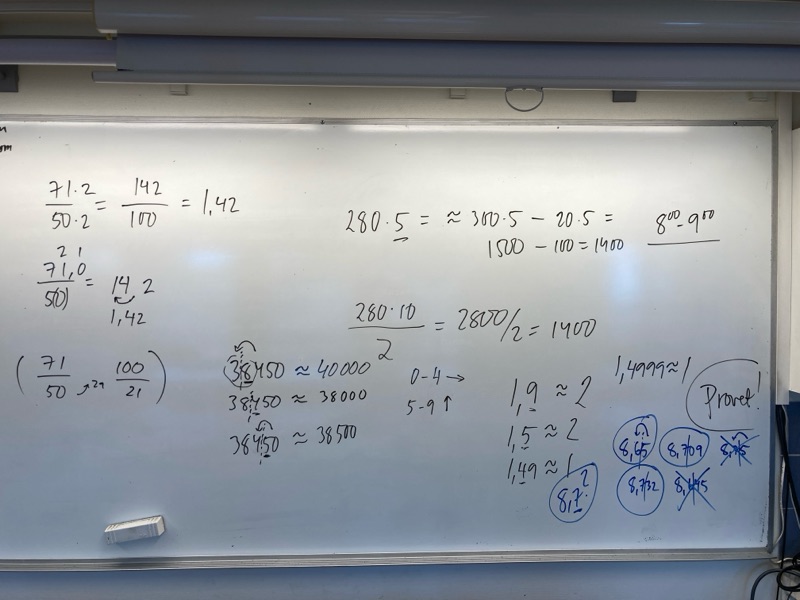 71·2/50·2 = 142/100 = 1,42
2 1
71,0/5(0) = 14 2
1,42
(71/50 100/21)
280·5 = ≈ 300·5 - 20·5 =
1500 - 100 = 1400
8⁰⁰-9⁰⁰
280·10/2 = 2800/2 = 1400
38450 ≈ 40000
38450 ≈ 38000
38450 ≈ 38500
0-4 →
5-9 ↑
1,9 ≈ 2
1,5 ≈ 2
1,49 ≈ 1
1,4999 ≈ 1
Provet!
8,7?
8,65
8,709
8,732